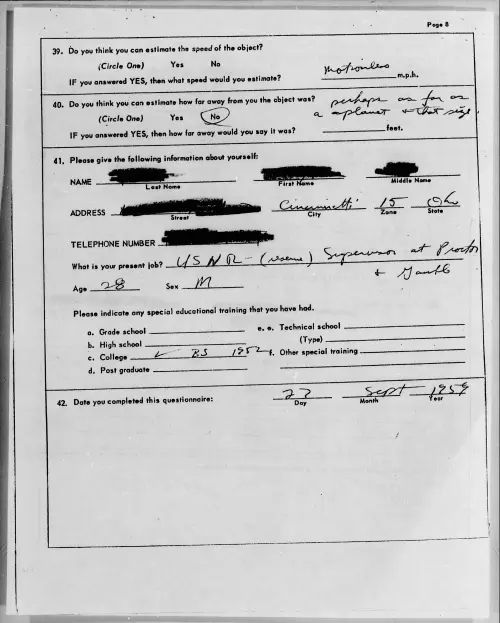 Page 8
39. Do you think you can estimate the speed of the object?
(Circle One) Yes No
IF you answered YES, then what speed would you estimate? Motionless m.p.h.
40. Do you think you can estimate how far away from you the object was? perhaps as far as
(Circle One) Yes No a planet & that size
IF you answered YES, then how far away would you say it was? feet.
41. Please give the following information about yourself:
NAME
Last Name First Name Middle Name
ADDRESS Cincinnatti 15 Oh
Street City Zone State
TELEPHONE NUMBER
What is your present job? USNR - (reserve) Supervisor at Proctor
& Gamble
Age 28 Sex M
Please indicate any special educational training that you have had.
a. Grade school e. e. Technical school
b. High school (Type)
c. College ✓ BS 1952 f. Other special training
d. Post graduate
42. Date you completed this questionnaire: 22 Sept 1959
Day Month Year